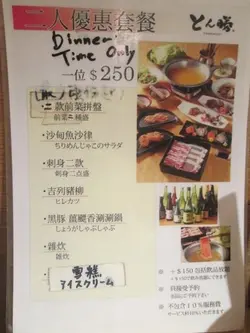 人優惠套餐
とん勝
Dinner
Time Only
一位 $250
·二款前菜拼盤
前菜二種盛
·沙甸魚沙律
ちりめんじゃこのサラダ
·刺身二款
刺身二点盛
·吉列豬柳
ヒレカツ
·黑豚 薑蔥香涮涮鍋
しょうがしゃぶしゃぶ
·雜炊
雑炊
雪糕
アイスクリーム
+$150包括飲品放題
·不包含10%服務費